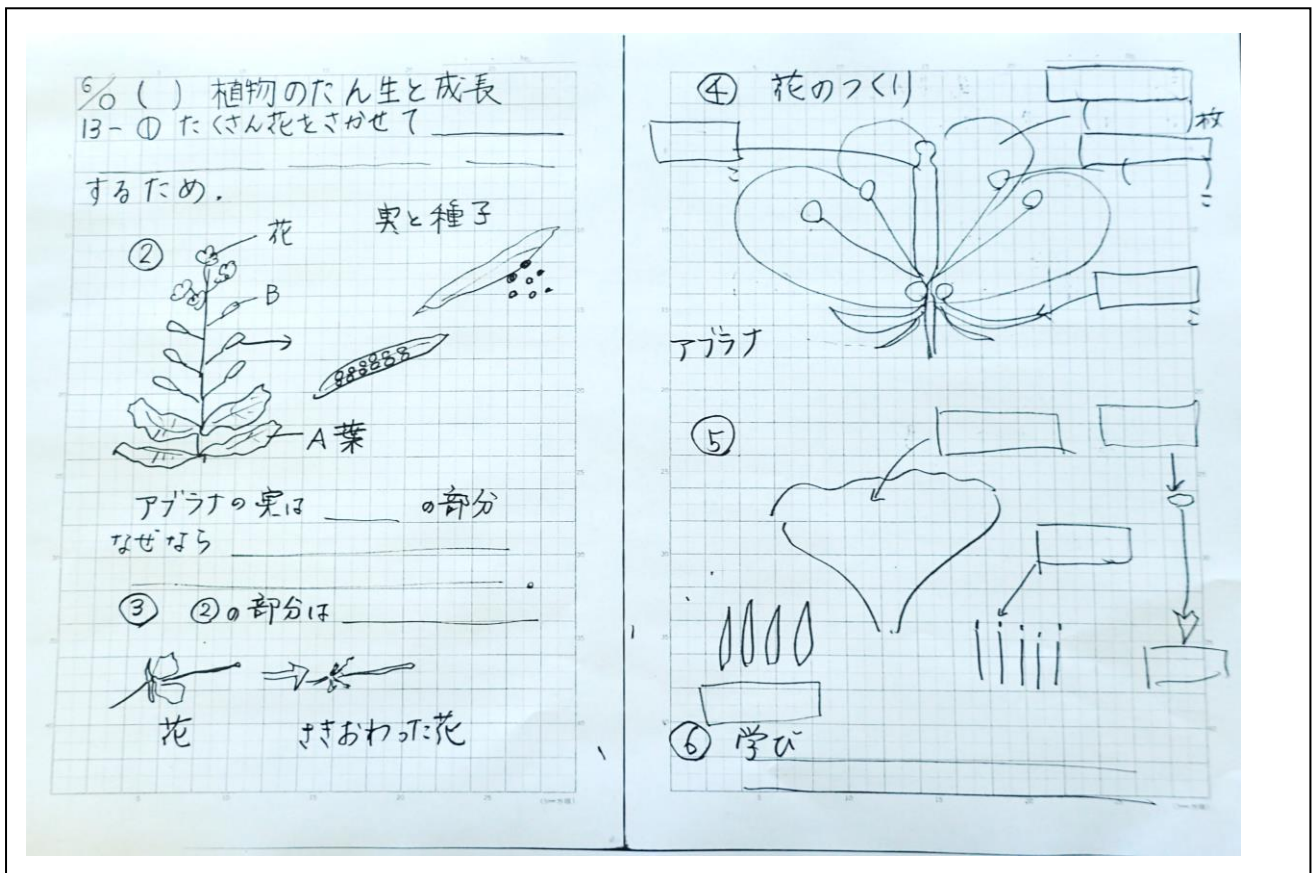 6/0 ( ) 植物のたん生と成長
13-① たくさん花をさかせて
するため.
②
花
実と種子
B
A 葉
アブラナの実は の部分
なぜなら
③ ②の部分は
花
さきおわった花
④ 花のつくり
( )枚
( )こ
こ
こ
アブラナ
⑤
⑥ 学び